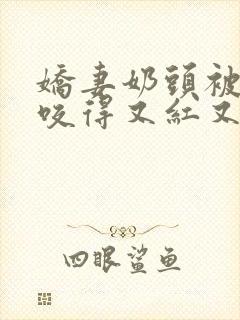 嬌妻奶頭被
咬得又紅又
四眼鯊鱼